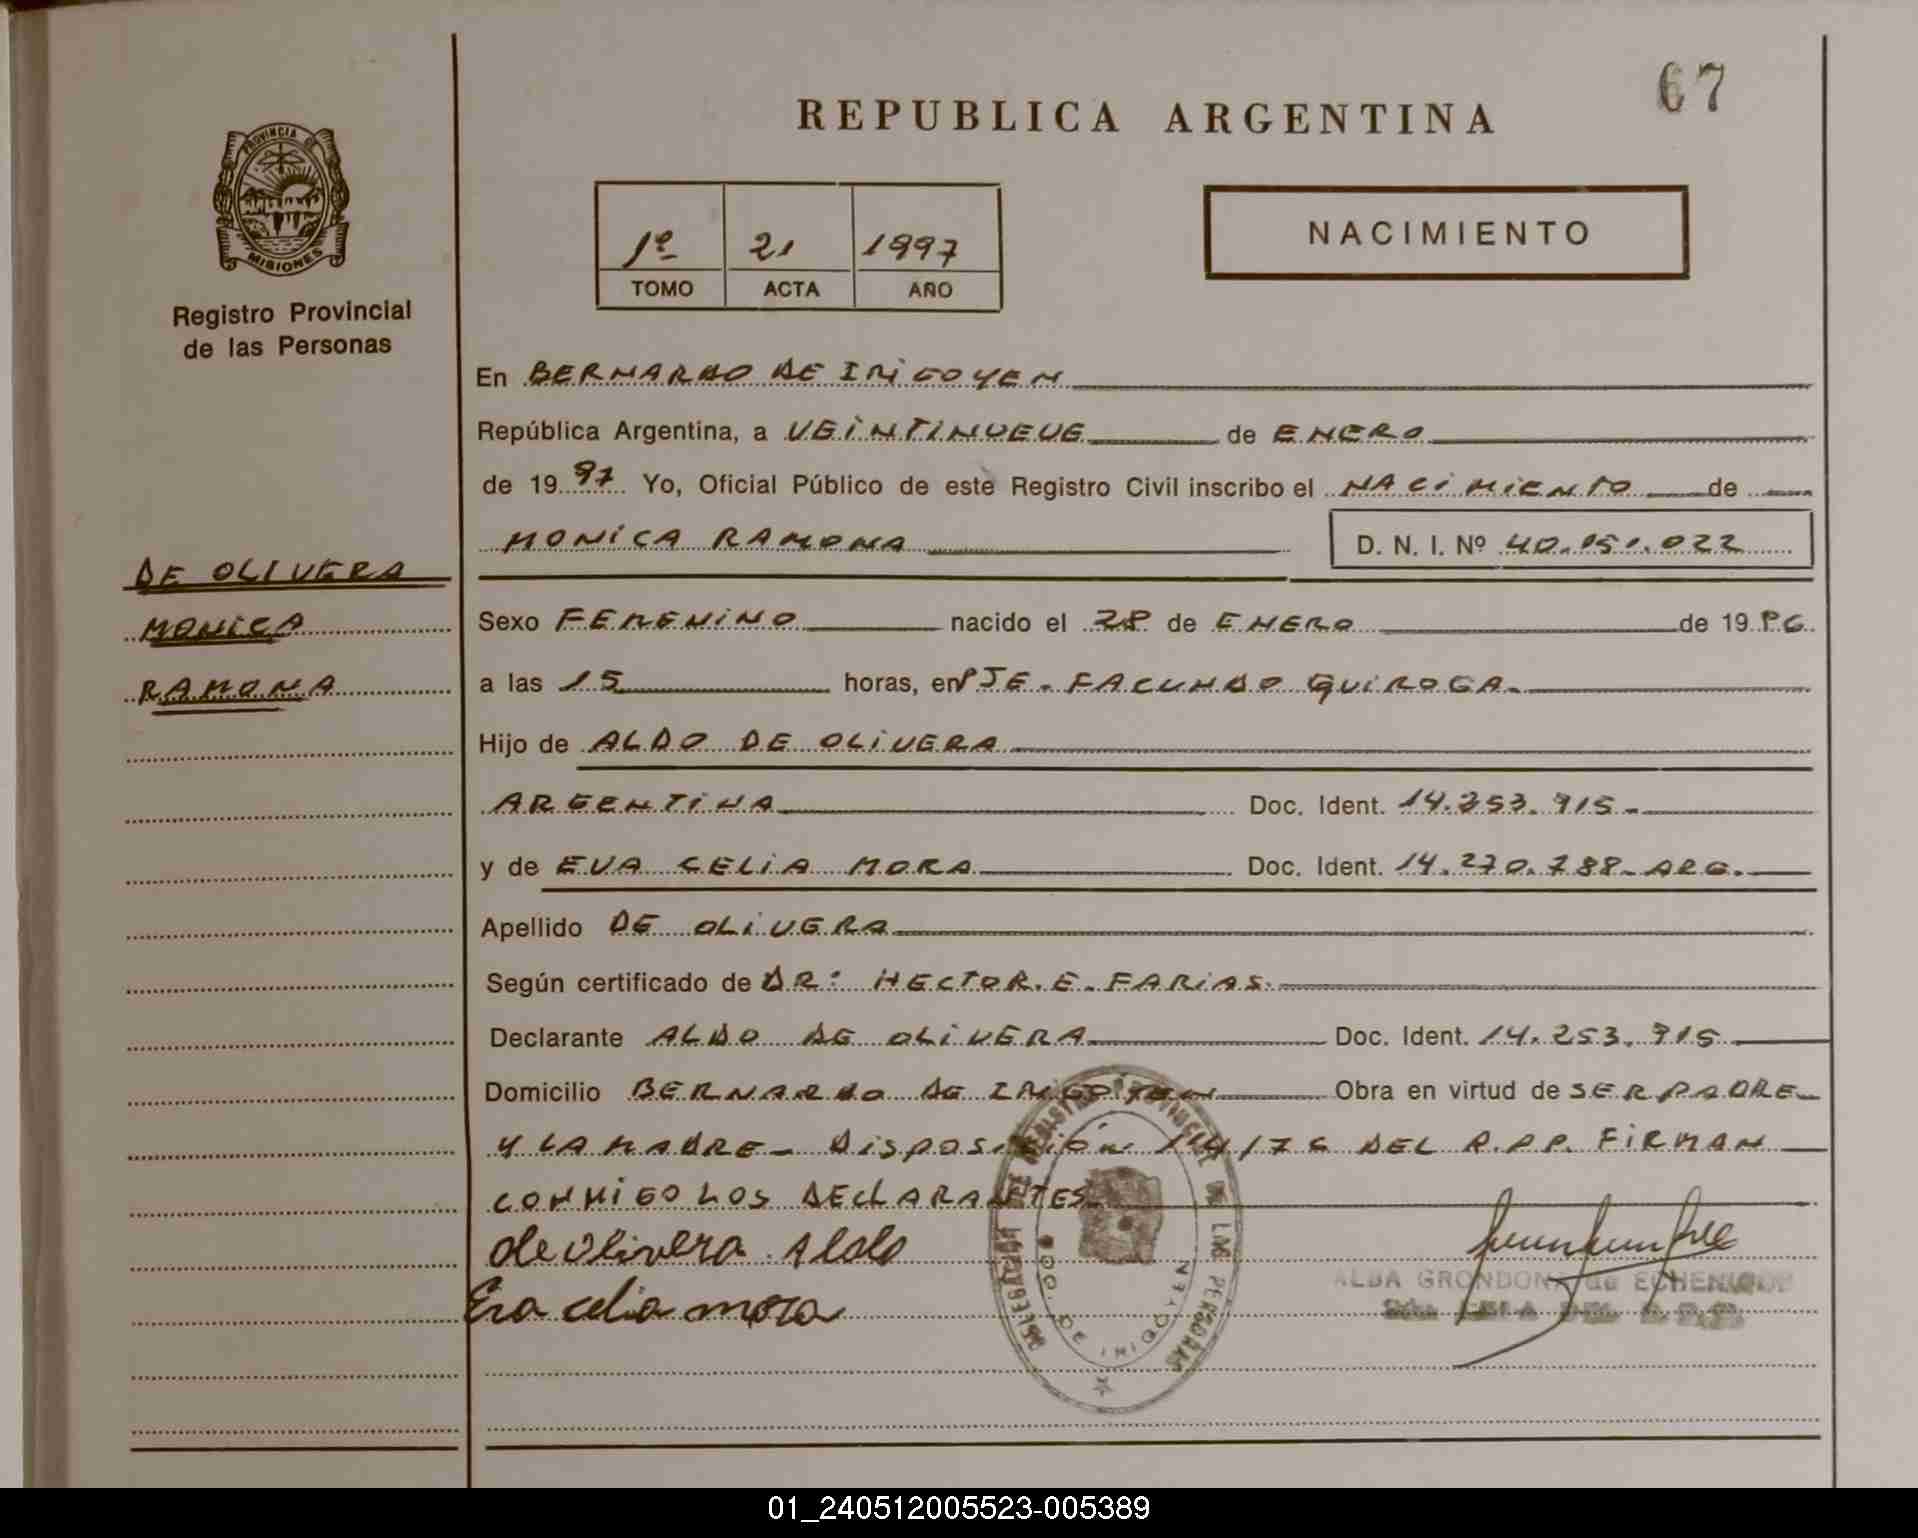 67
REPUBLICA ARGENTINA
PROVINCIA DE
MISIONES
Registro Provincial
de las Personas
1º 21 1997
TOMO ACTA AÑO
NACIMIENTO
En BERNARDO DE IRIGOYEN
República Argentina, a VEINTINUEVE de ENERO
de 1997 Yo, Oficial Público de este Registro Civil inscribo el NACIMIENTO de
MONICA RAMONA D. N. I. Nº 40.151.022
DE OLIVERA
MONICA
RAMONA
Sexo FEMENINO nacido el 28 de ENERO de 19
a las 15 horas, en PJE. FACUNDO QUIROGA.
Hijo de ALDO DE OLIVERA
ARGENTINA Doc. Ident. 14.253.915.-
y de EVA CELIA MORA Doc. Ident. 14.270.788- ARG.
Apellido DE OLIVERA
Según certificado de DR: HECTOR. E. FARIAS.
Declarante ALDO DE OLIVERA Doc. Ident. 14.253.915
Domicilio BERNARDO DE IRIGOYEN Obra en virtud de SER PADRE
Y LA MADRE - DISPOSICIÓN 114/76 DEL R.P.P. FIRMAN
CONMIGO LOS DECLARANTES
de Olivera Aldo
Eva celia mora
DELEGACION DE REGISTRO PROVINCIAL DE LAS PERSONAS
BDO. DE IRIGOYEN
ALBA GRONDONA de ECHENIQUE
01_240512005523-005389